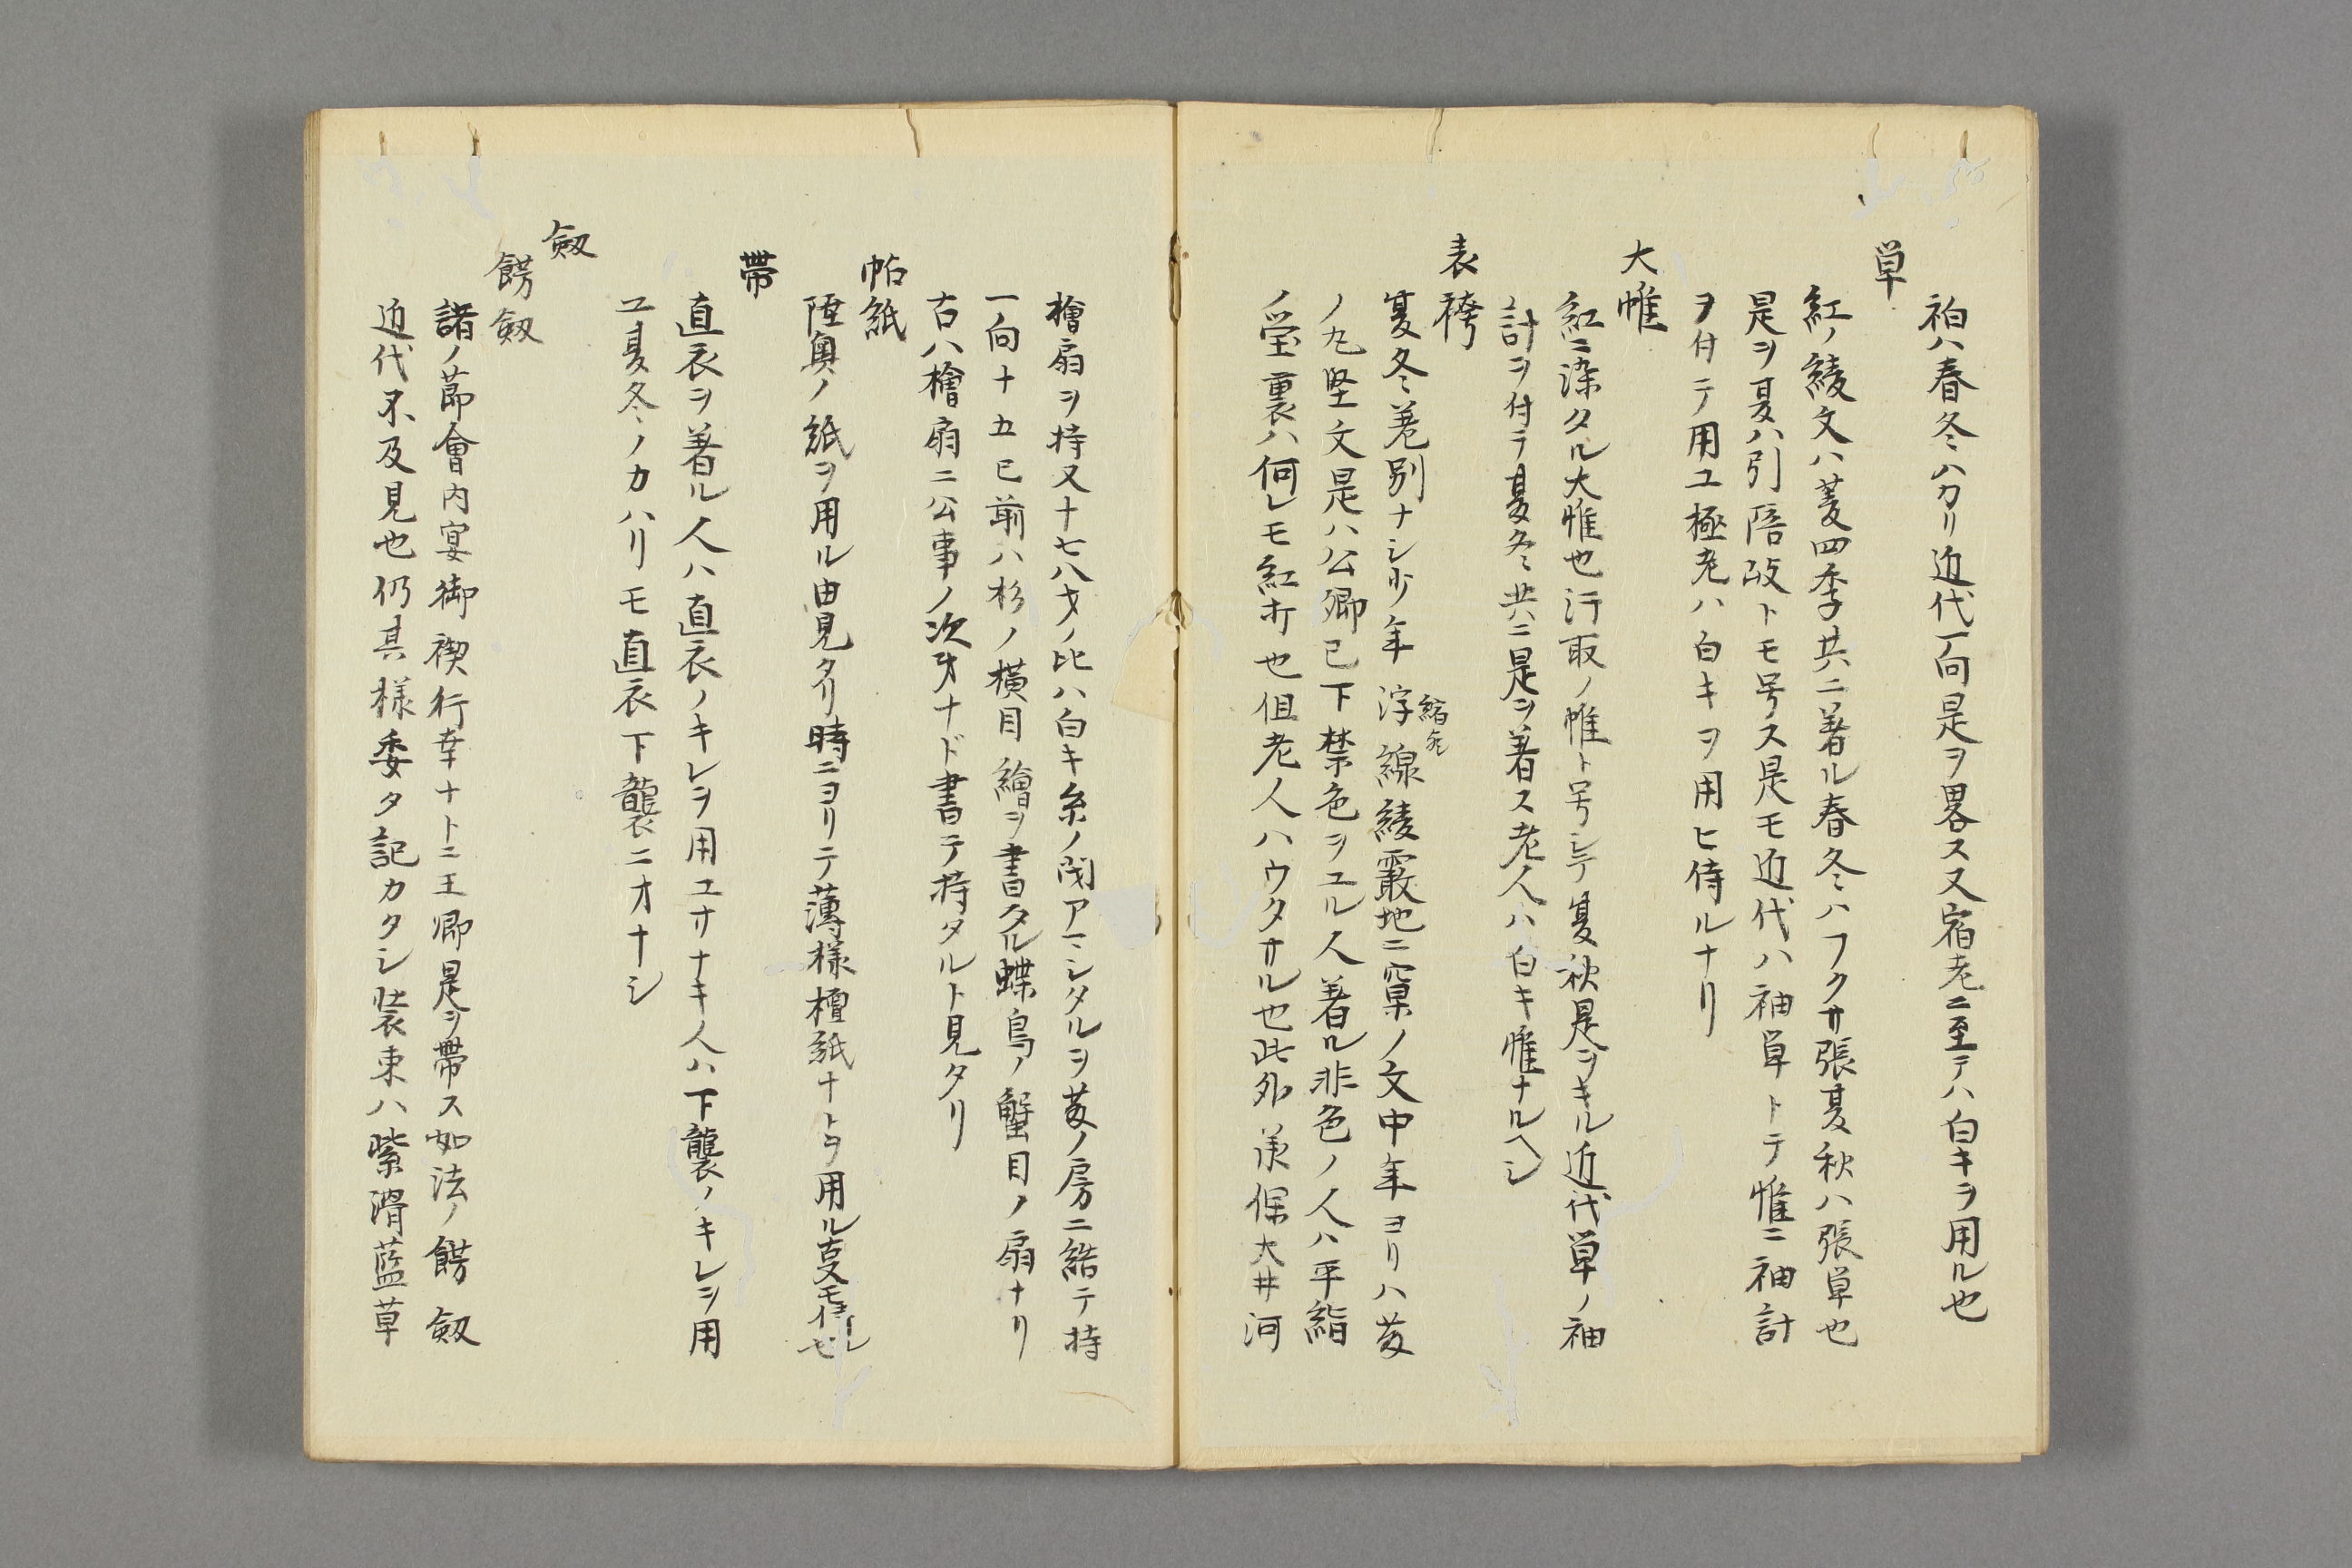 袙ハ春冬ハカリ近代一向是ヲ畧ス又宿老ニ至テハ白キヲ用ル也
単
紅ノ綾文ハ菱四季共ニ著ル春冬ハフクサ張夏秋ハ張単也
是ヲ夏ハ引陪改トモ号ス是モ近代ハ袖単トテ帷ニ袖計
ヲ付テ用ユ極老ハ白キヲ用ヒ侍ルナリ
大帷
紅ニ染タル大帷也汗取ノ帷ト号シテ夏秋是ヲキル近代単ノ袖
計ヲ付テ夏冬共ニ是ヲ着ス老人ハ白キ帷ナルヘシ
表袴
夏冬差別ナシ少年浮線綾霰地ニ窠ノ文中年ヨリハ藤
ノ丸堅文是ハ公卿已下禁色ヲユル人著ル非色ノ人ハ平絹
ノ瑩裏ハ何レモ紅打也但老人ハウタサル也此外 保大井河
檜扇ヲ持又十七八才ノ比ハ白キ糸ノ閉アマシタルヲ藤ノ房ニ結テ持
一向十五已前ハ杉ノ横目繪ヲ書タル蝶鳥ノ蟹目ノ扇ナリ
古ハ檜扇ニ公事ノ次才ナド書テ持タルト見タリ
帖紙
陸奥ノ紙ヲ用ル由見タリ時ニヨリテ薄様檀紙ナトヲ用ル
帯
直衣ヲ著ル人ハ直衣ノキレヲ用ユサナキ人ハ下襲ノキレヲ用
ユ夏冬ノカハリモ直衣下襲ニオナシ
劔
餝劔
諸ノ節會内宴御禊行幸ナトニ王卿是ヲ帯ス如法ノ餝劔
近代不及見也仍其様委夕記カタシ装束ハ紫滑藍草